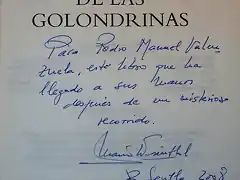 DE LAS
GOLONDRINAS
Para Pedro Manuel Valen
zuela, este libro que ha
llegado a sus manos
después de un misterioso
recorrido.
2008